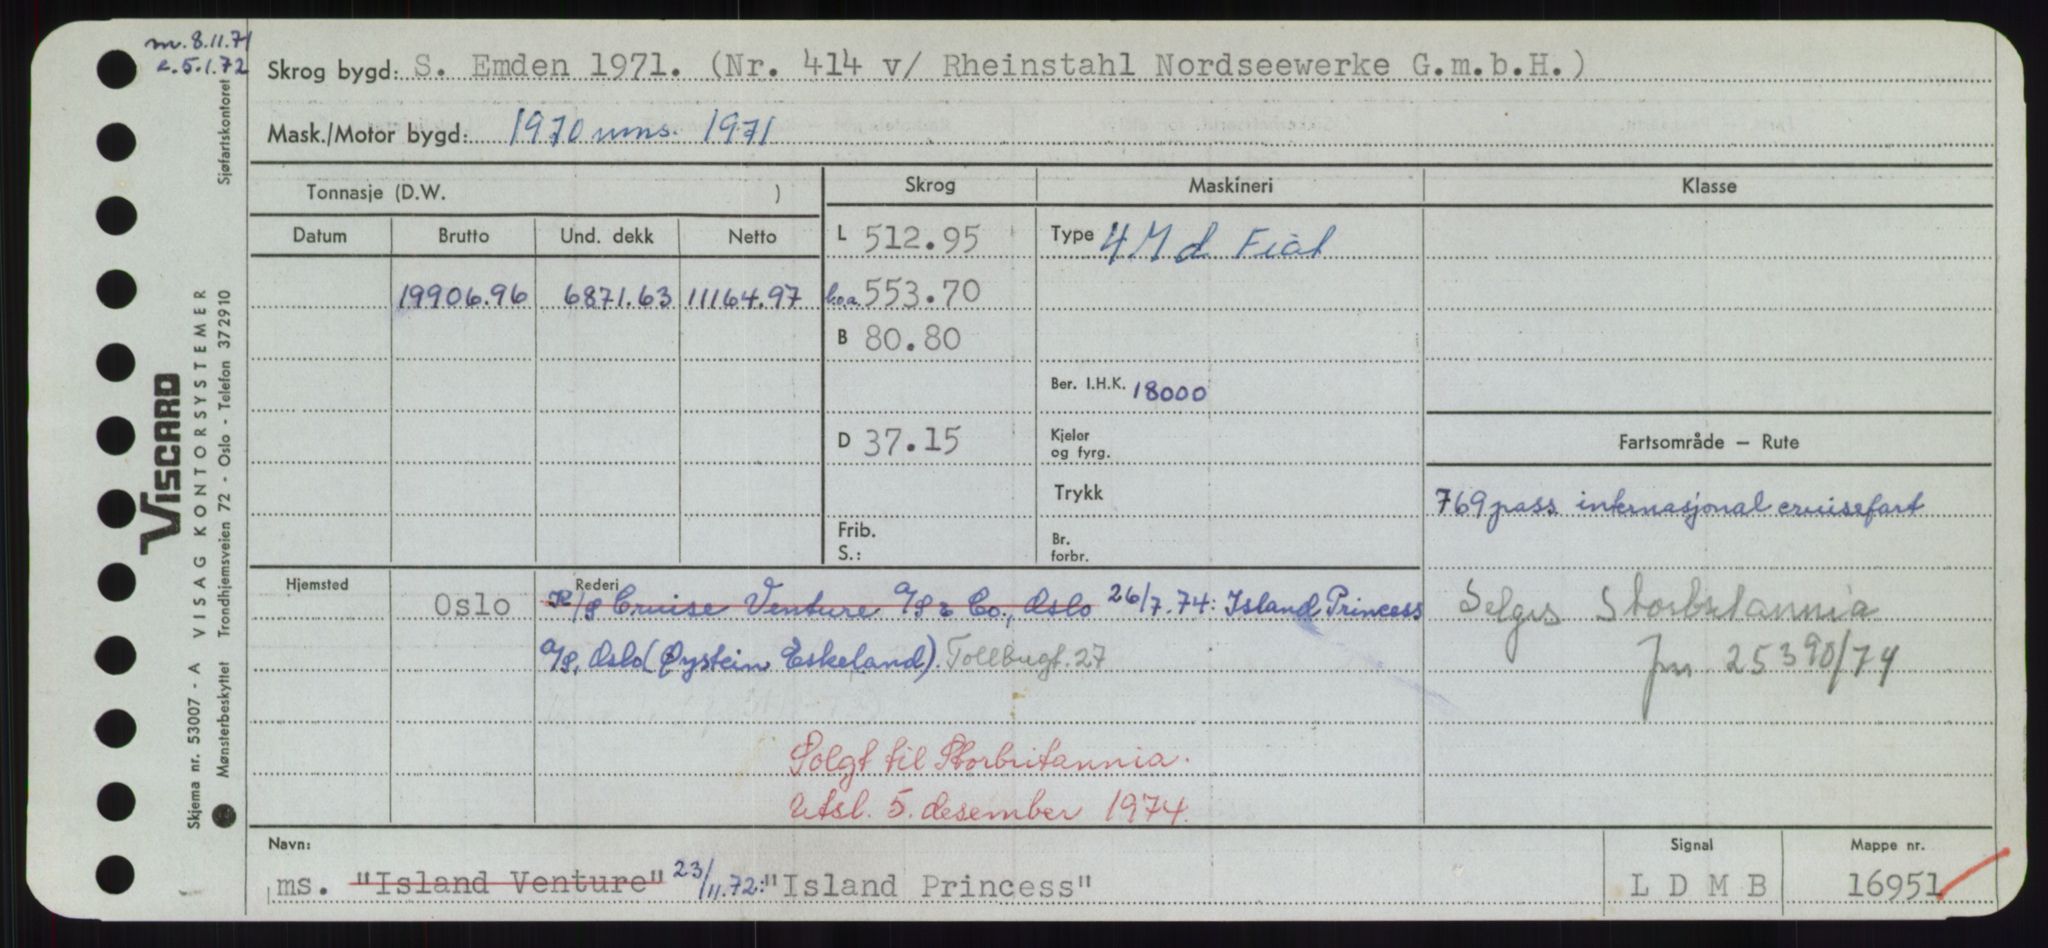 m. 8.11.71
e. 5.1.72
Skrog bygd: S. Emden 1971. (Nr. 414 v/ Rheinstahl Nordseewerke G.m.b.H.)
Mask./Motor bygd: 1970 mms. 1971
Tonnasje (D.W. )
Skrog
Maskineri
Klasse
Datum
Brutto
Und. dekk
Netto
L 512.95
Type 4 M d Fiat
19906.96 6871.63 11164.97
l.o.a. 553.70
B 80.80
Ber. I.H.K. 18000
D 37.15
Kjeler
og fyrg.
Fartsområde – Rute
Trykk
769 pass internasjonal cruisefart
Frib.
S.:
Br.
forbr.
Hjemsted
Rederi
Oslo
K/S Cruise Venture A/S & Co., Oslo 26/7.74: Island Princess
A/S, Oslo (Øystein Eskeland). Tollbugt. 27
Selges Storbritannia
jnr 25390/74
Solgt til Storbritannia.
Utsl. 5. desember 1974.
Navn:
Signal
Mappe nr.
ms. "Island Venture" 23/11.72: "Island Princess"
L D M B
16951
Skjema nr. 53007 - A VISAG KONTORSYSTEMER
Viscard
Mønsterbeskyttet Trondhjemsveien 72 - Oslo - Telefon 372910
Sjøfartskontoret